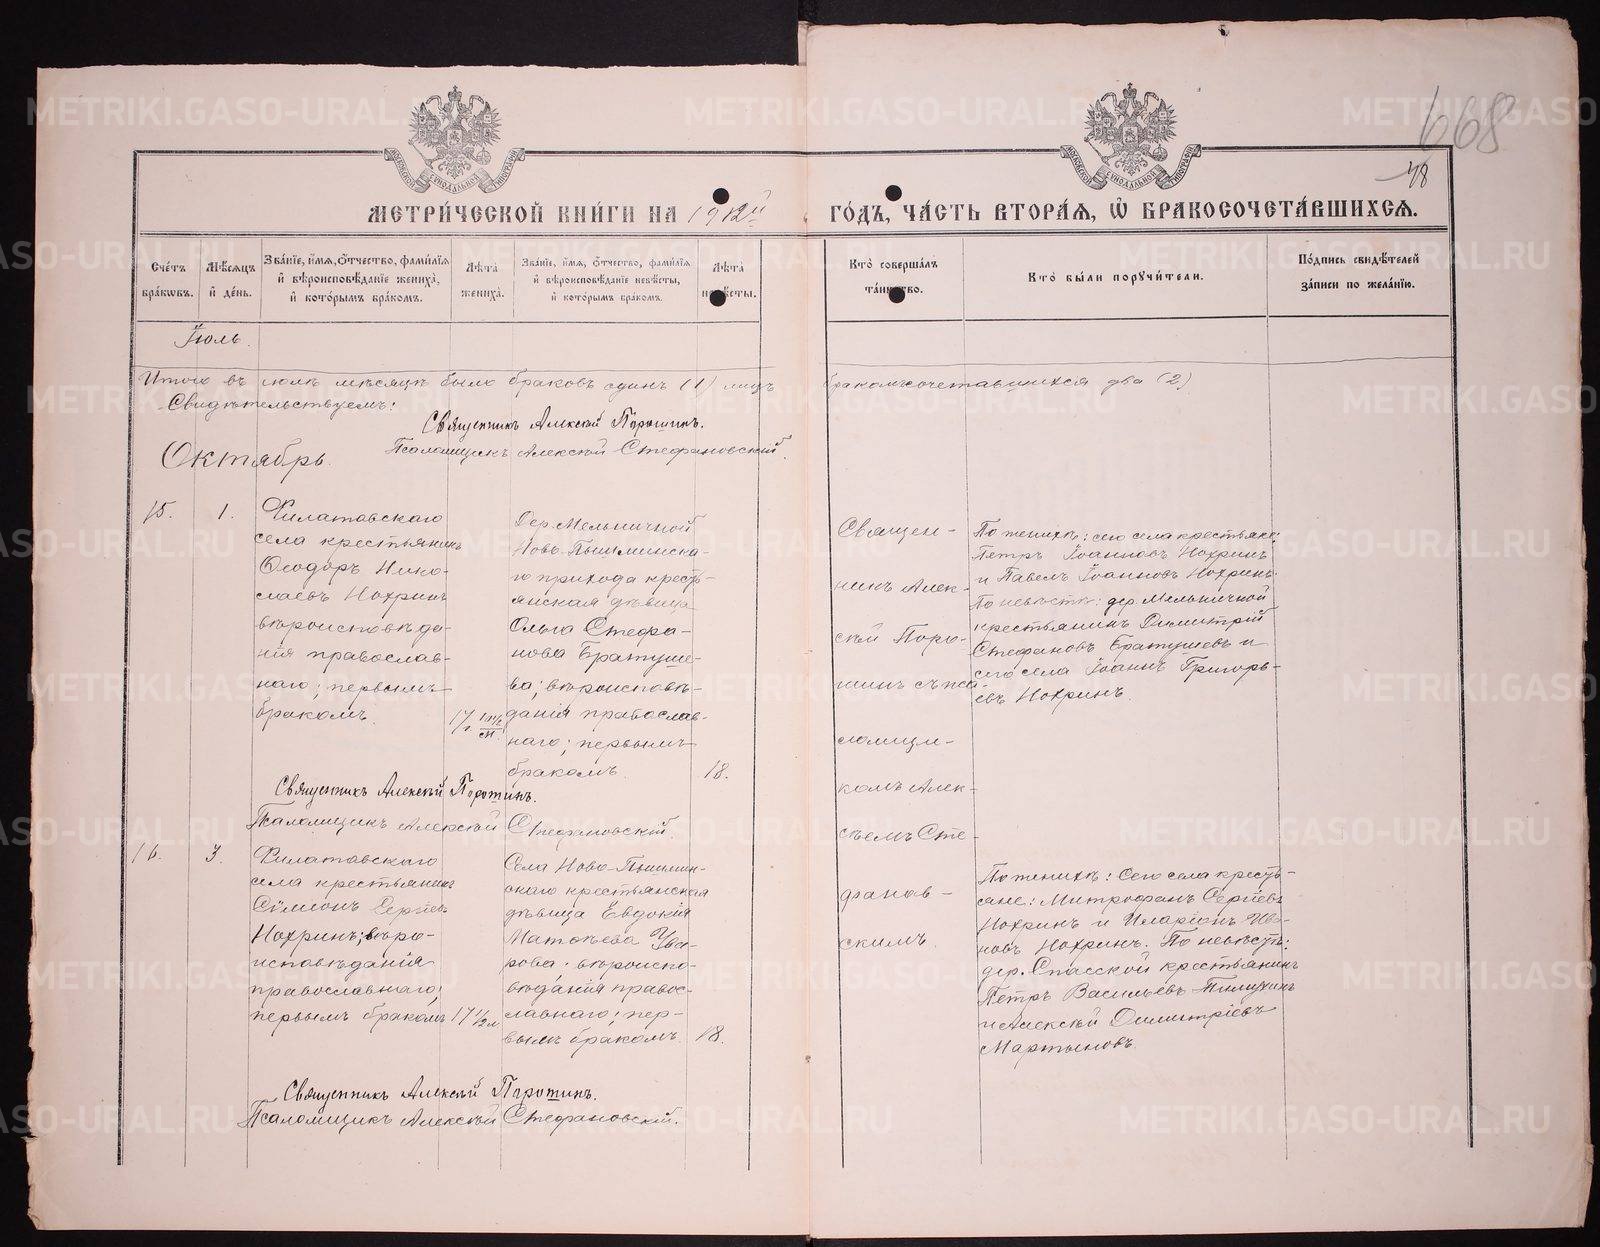 METRIKI.GASO-URAL.RU
668
48
МОСКОВСКОЙ СѴНОДАЛЬНОЙ ТИПОГРАФІИ
МОСКОВСКОЙ СѴНОДАЛЬНОЙ ТИПОГРАФІИ
МЕТРИ́ЧЕСКОЙ КНИ́ГИ НА 1912й ГО́ДЪ, ЧА́СТЬ ВТОРА́Я, Ѡ҆ БРАКОСОЧЕТА́ВШИХСЯ.
Сче́тъ бра́ковъ.
Мѣ́сяцъ и҆ де́нь.
Зва́нїе, и҆́мя, ѻ҆́тчество, фами́лїя и҆ вѣроисповѣ́данїе жениха̀, и҆ кото́рымъ бра́комъ.
Лѣ́та жениха̀.
Зва́нїе, и҆́мя, ѻ҆́тчество, фами́лїя и҆ вѣроисповѣ́данїе невѣ́сты, и҆ кото́рымъ бра́комъ.
Лѣ́та невѣ́сты.
Кто̀ соверша́лъ та́инство.
Кто̀ бы́ли поручи́тели.
По́дпись свидѣ́телей за́писи по жела́нїю.
Іюль.
Итого въ іюлѣ мѣсяцѣ было браковъ одинъ (1) лицъ бракомъ сочетавшихся два (2)
Свидѣтельствуемъ:
Священникъ Алексій Порошинъ.
Псаломщикъ Алексій Стефановскій.
Октябрь.
15.
1.
Филатовскаго
села крестьянинъ
Ѳеодоръ Нико-
лаевъ Нохринъ
вѣроисповѣда-
нія православ-
наго; первымъ
бракомъ.
17 г. 10½ м.
Дер. Мельничной
Ново-Пышминска-
го прихода кресть-
янская дѣвица
Ольга Стефа-
нова Братуше-
ва; вѣроисповѣ-
данія православ-
наго; первымъ
бракомъ.
18.
Священ-
никъ Алек-
сѣй Поро-
шинъ съ пса-
ломщи-
комъ Алек-
сѣемъ Сте-
фанов-
скимъ.
По женихѣ: сего села крестьяне:
Петръ Іоанновъ Нохринъ
и Павелъ Іоанновъ Нохринъ.
По невѣстѣ: дер. Мельничной
крестьянинъ Димитрій
Стефановъ Братушевъ и
сего села Іоаннъ Григорь-
евъ Нохринъ.
Священникъ Алексѣй Порошинъ.
Псаломщикъ Алексѣй Стефановскій.
16.
3.
Филатовскаго
села крестьянинъ
Сѵмеонъ Сергіевъ
Нохринъ; вѣро-
исповѣданія
православнаго;
первымъ бракомъ
17 1/2 л
Села Ново-Пышмин-
скаго крестьянская
дѣвица Евдокія
Матѳеева Ува-
рова; вѣроиспо-
вѣданія право-
славнаго; пер-
вымъ бракомъ.
18.
По женихѣ: Сего села кресть-
яне: Митрофанъ Сергіевъ
Нохринъ и Иларіонъ Ива-
новъ Нохринъ. По невѣстѣ:
дер. Спасской крестьянинъ
Петръ Васильевъ
и Алексѣй Димитріевъ
Мартыновъ.
Священникъ Алексѣй Порошинъ.
Псаломщикъ Алексѣй Стефановскій.